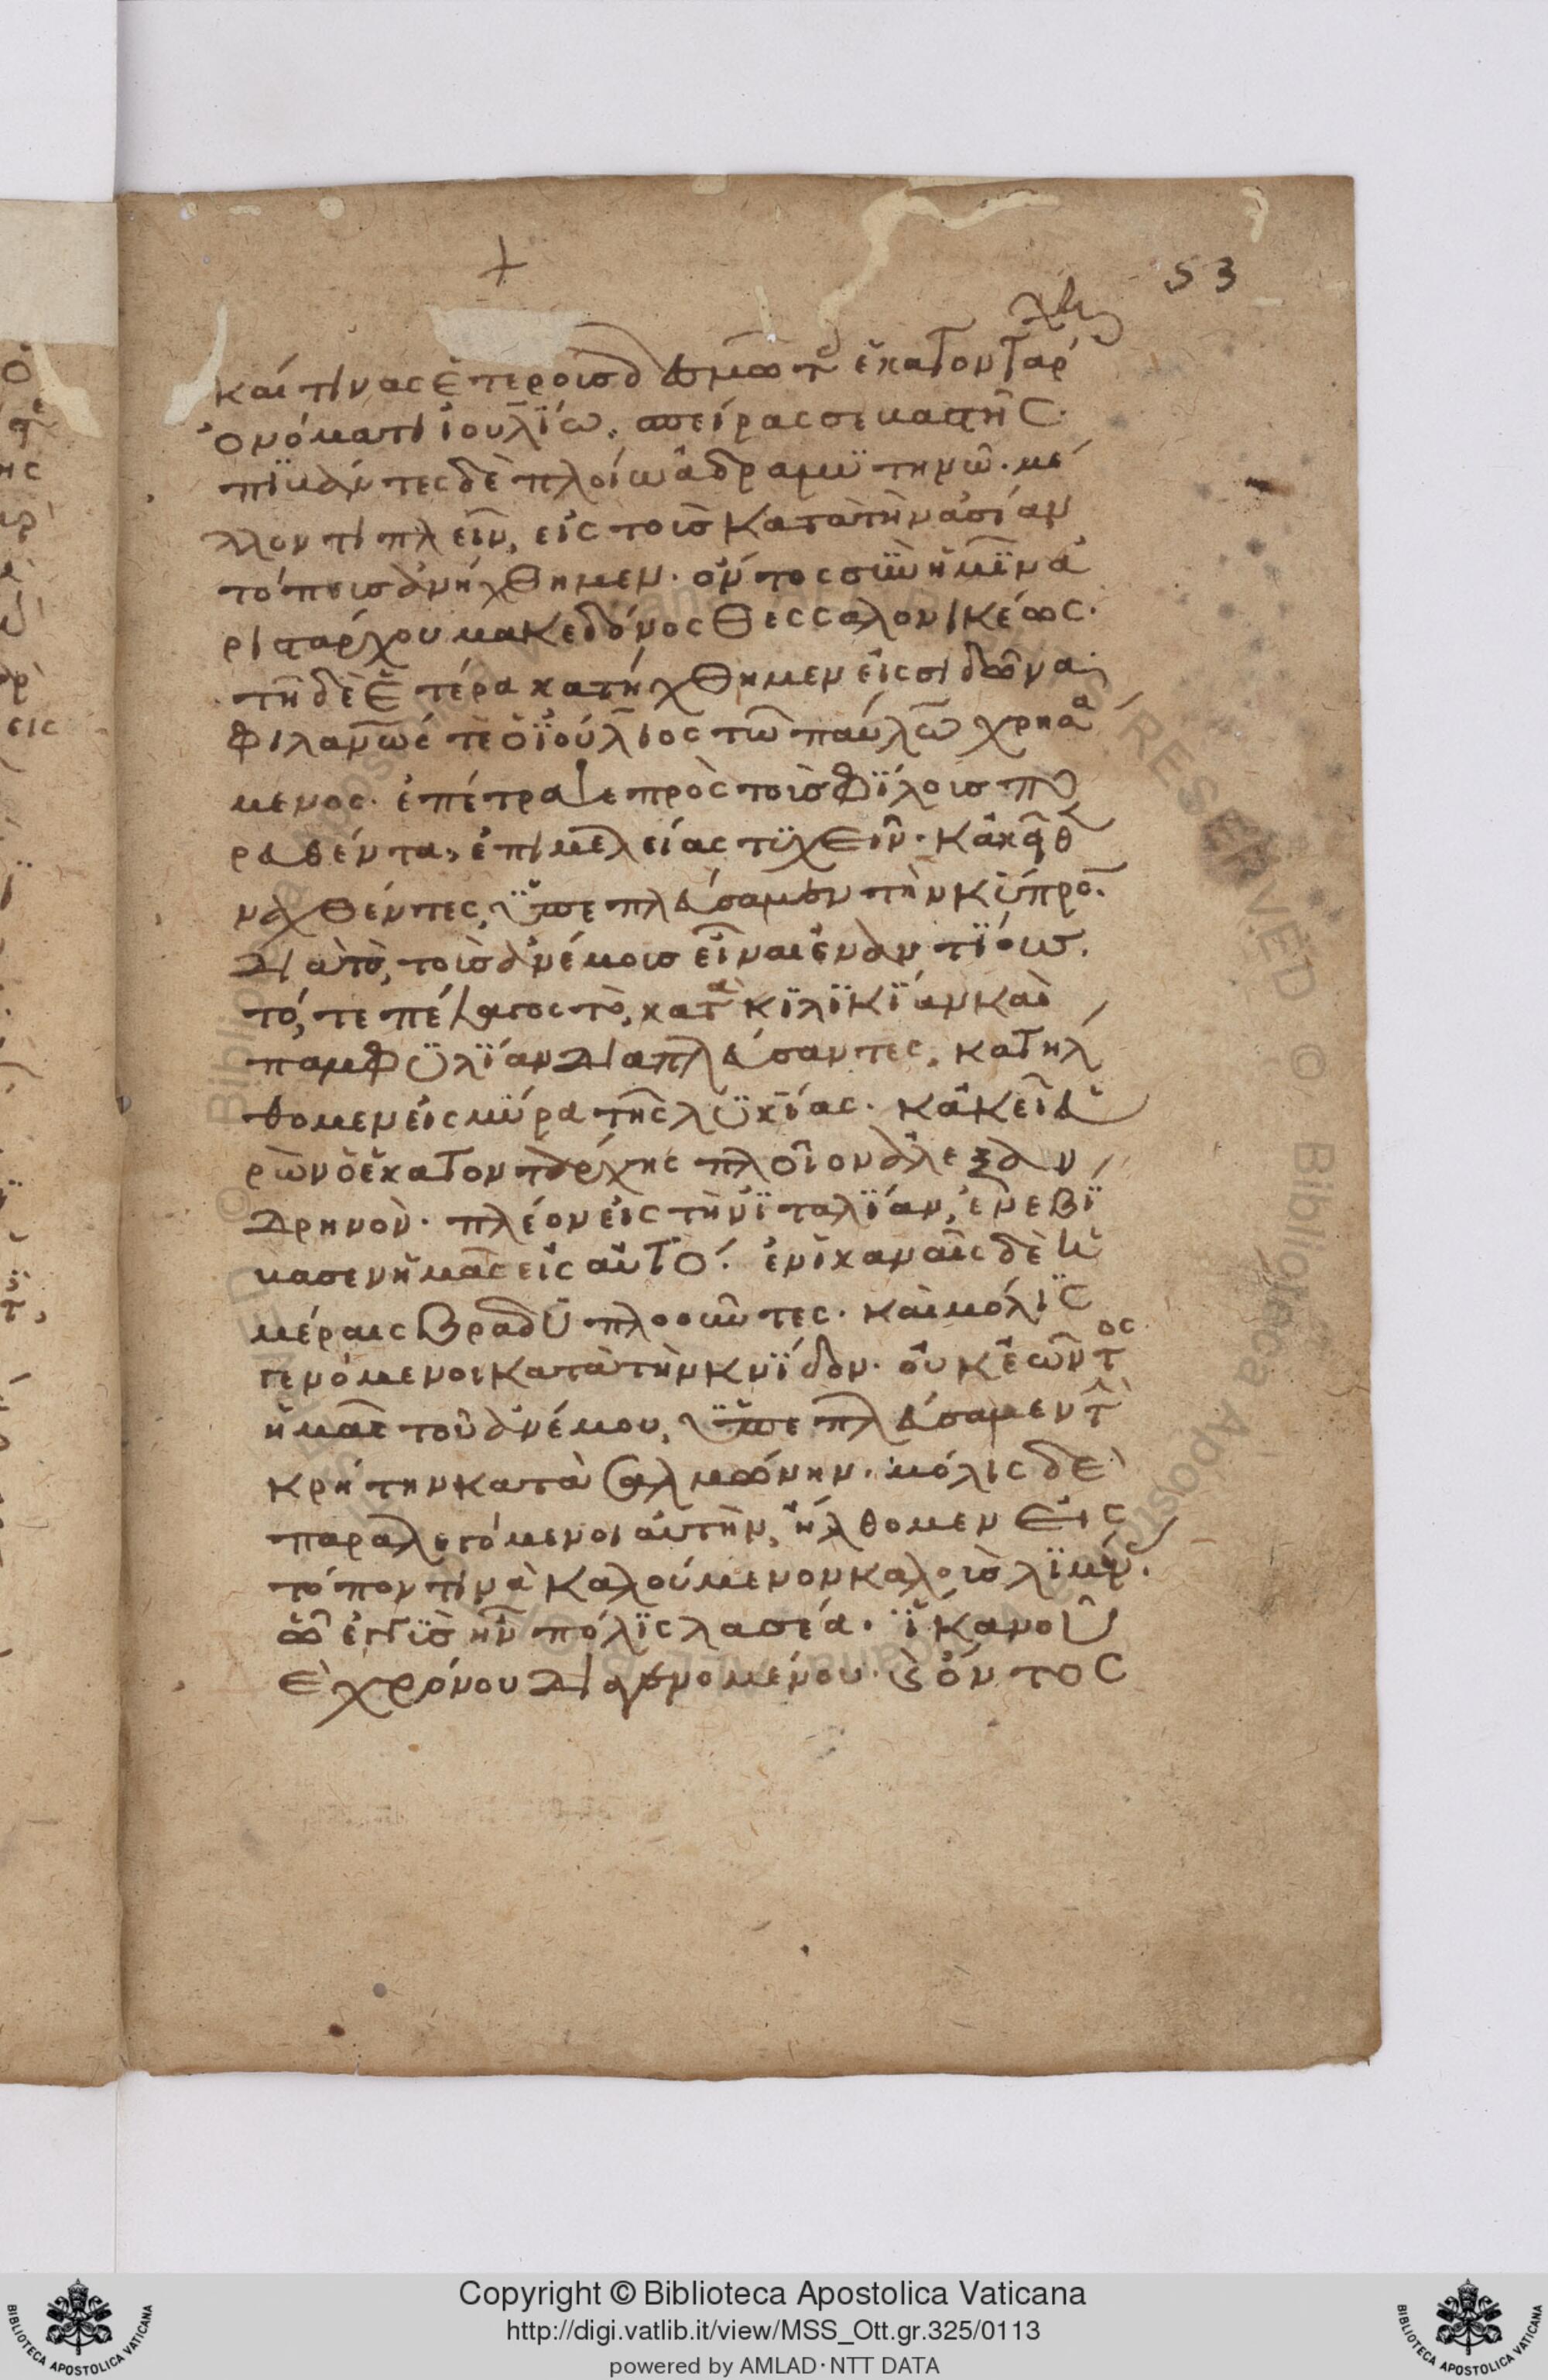 53
καί τινας ἑτέρους δεσμώτ ἑκατοντάρ
χῃ
ὀνόματι ἰουλΐω. σπείρας σεβαστῆς.
ἐπϊβάντες δὲ πλοίω ἀδραμϋτηνῶ. μέ
λλοντι πλεῖν, εἰς τοὺς κατὰ τὴν ἀσίαν
τόπους ἀνήχθημεν. ὄντος σὺν ἡμῖν ἀ
ριστάρχου μακεδόνος θεσσαλονικέως.
τῆ δὲ ἑτέρα κατήχθημεν εἰς σιδῶνα.
φιλανῶς τὲ ὁ ἰούλιος τῶ παύλω χρησά
μενος. ἐπέτρεψε πρὸς τοὺς φΐλους πο
ρευθέντα, ἐπιμελείας τϋχεῖν. κἀκεῖθ
ναχθέντες, ὑπεπλεύσαμεν τὴν κύπρο.
διὰ τὸ, τοὺς ἀνέμους εἶναι ἐναντΐους.
τό, τε πέλαγος τὸ, κατὰ κϊλϊκΐαν καὶ
παμφϋλΐαν διαπλεύσαντες, κατήλ
θομεν εἰς μύρα τῆς λϋκΐας. κἀκεῖ εὑ
ρὼν ὁ ἑκατοντάρχης πλοῖον ἀλεξαν
δρηνὸν. πλέον εἰς τὴν ἰταλΐαν, ἐνεβΐ
βασεν ἡμᾶς εἰς αὐτό. ἐν ἱκαναῖς δὲ ἡ
μέραις βραδϋπλοοῦντες. καὶ μόλϊς
γενόμενοι κατὰ τὴν κνΐδον. οὐκ ἐῶντος
ἡμᾶς τοῦ ἀνέμου, ὑπεπλεύσαμεν τὴ
κρήτην κατὰ σαλμώνην. μόλις δὲ
παραλεγόμενοι αὐτὴν, ἤλθομεν εἰς
τόπον τινὰ καλούμενον καλοὺς λϊμέν.
ὧ ἐγγϋς ἦν πόλϊς λασέα. ἱκανοῦ
ὲ χρόνου διαγενομένου. καὶ ὄντος
Copyright © Biblioteca Apostolica Vaticana
http://digi.vatlib.it/view/MSS_Ott.gr.325/0113
powered by AMLAD·NTT DATA